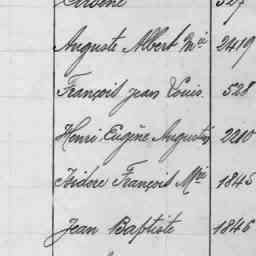 Auguste Albert Mie 2419
François Jean Louis. 528
Henri Eugène Augustin 2210
Isidore François Mie 1845
Jean Baptiste 1846